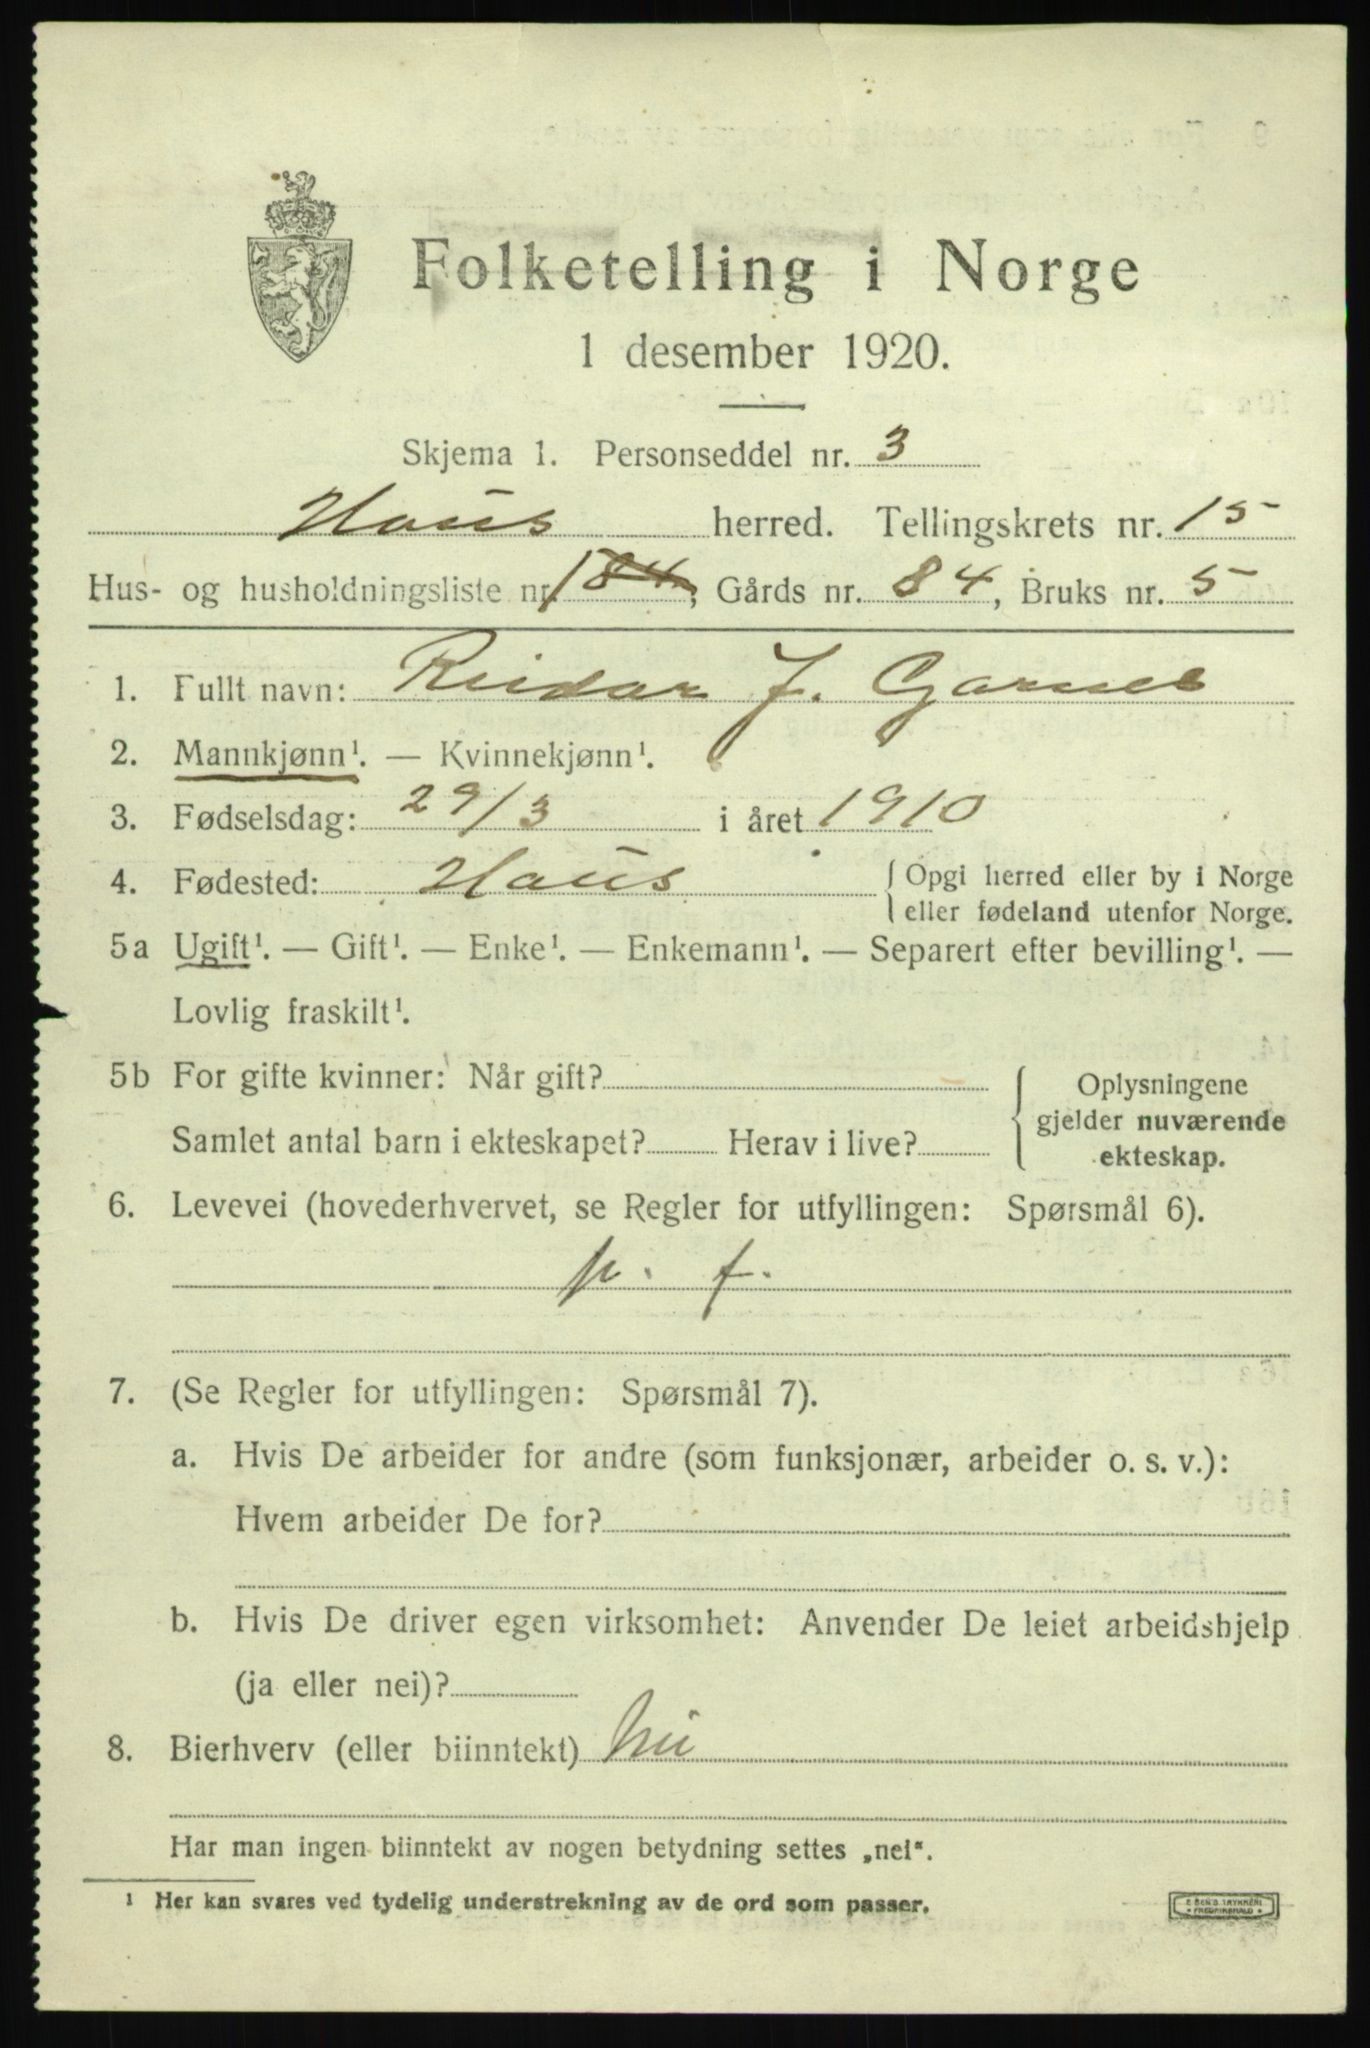 Folketelling i Norge
1 desember 1920.
Skjema 1. Personseddel nr. 3
Haus herred. Tellingskrets nr. 15
Hus- og husholdningsliste nr. 184, Gårds nr. 84, Bruks nr. 5
1. Fullt navn: Reidar J. Garnes
2. Mannkjønn¹. — Kvinnekjønn¹.
3. Fødselsdag: 29/3 i året 1910
4. Fødested: Haus { Opgi herred eller by i Norge
eller fødeland utenfor Norge.
5a Ugift¹. — Gift¹. — Enke¹. — Enkemann¹. — Separert efter bevilling¹. —
Lovlig fraskilt¹.
5b For gifte kvinner: Når gift?
Samlet antal barn i ekteskapet? Herav i live?
{ Oplysningene
gjelder nuværende
ekteskap.
6. Levevei (hovederhvervet, se Regler for utfyllingen: Spørsmål 6).
p. f.
7. (Se Regler for utfyllingen: Spørsmål 7).
a. Hvis De arbeider for andre (som funksjonær, arbeider o. s. v.):
Hvem arbeider De for?
b. Hvis De driver egen virksomhet: Anvender De leiet arbeidshjelp
(ja eller nei)?
8. Bierhverv (eller biinntekt) Nei
Har man ingen biinntekt av nogen betydning settes „nei“.
¹ Her kan svares ved tydelig understrekning av de ord som passer.